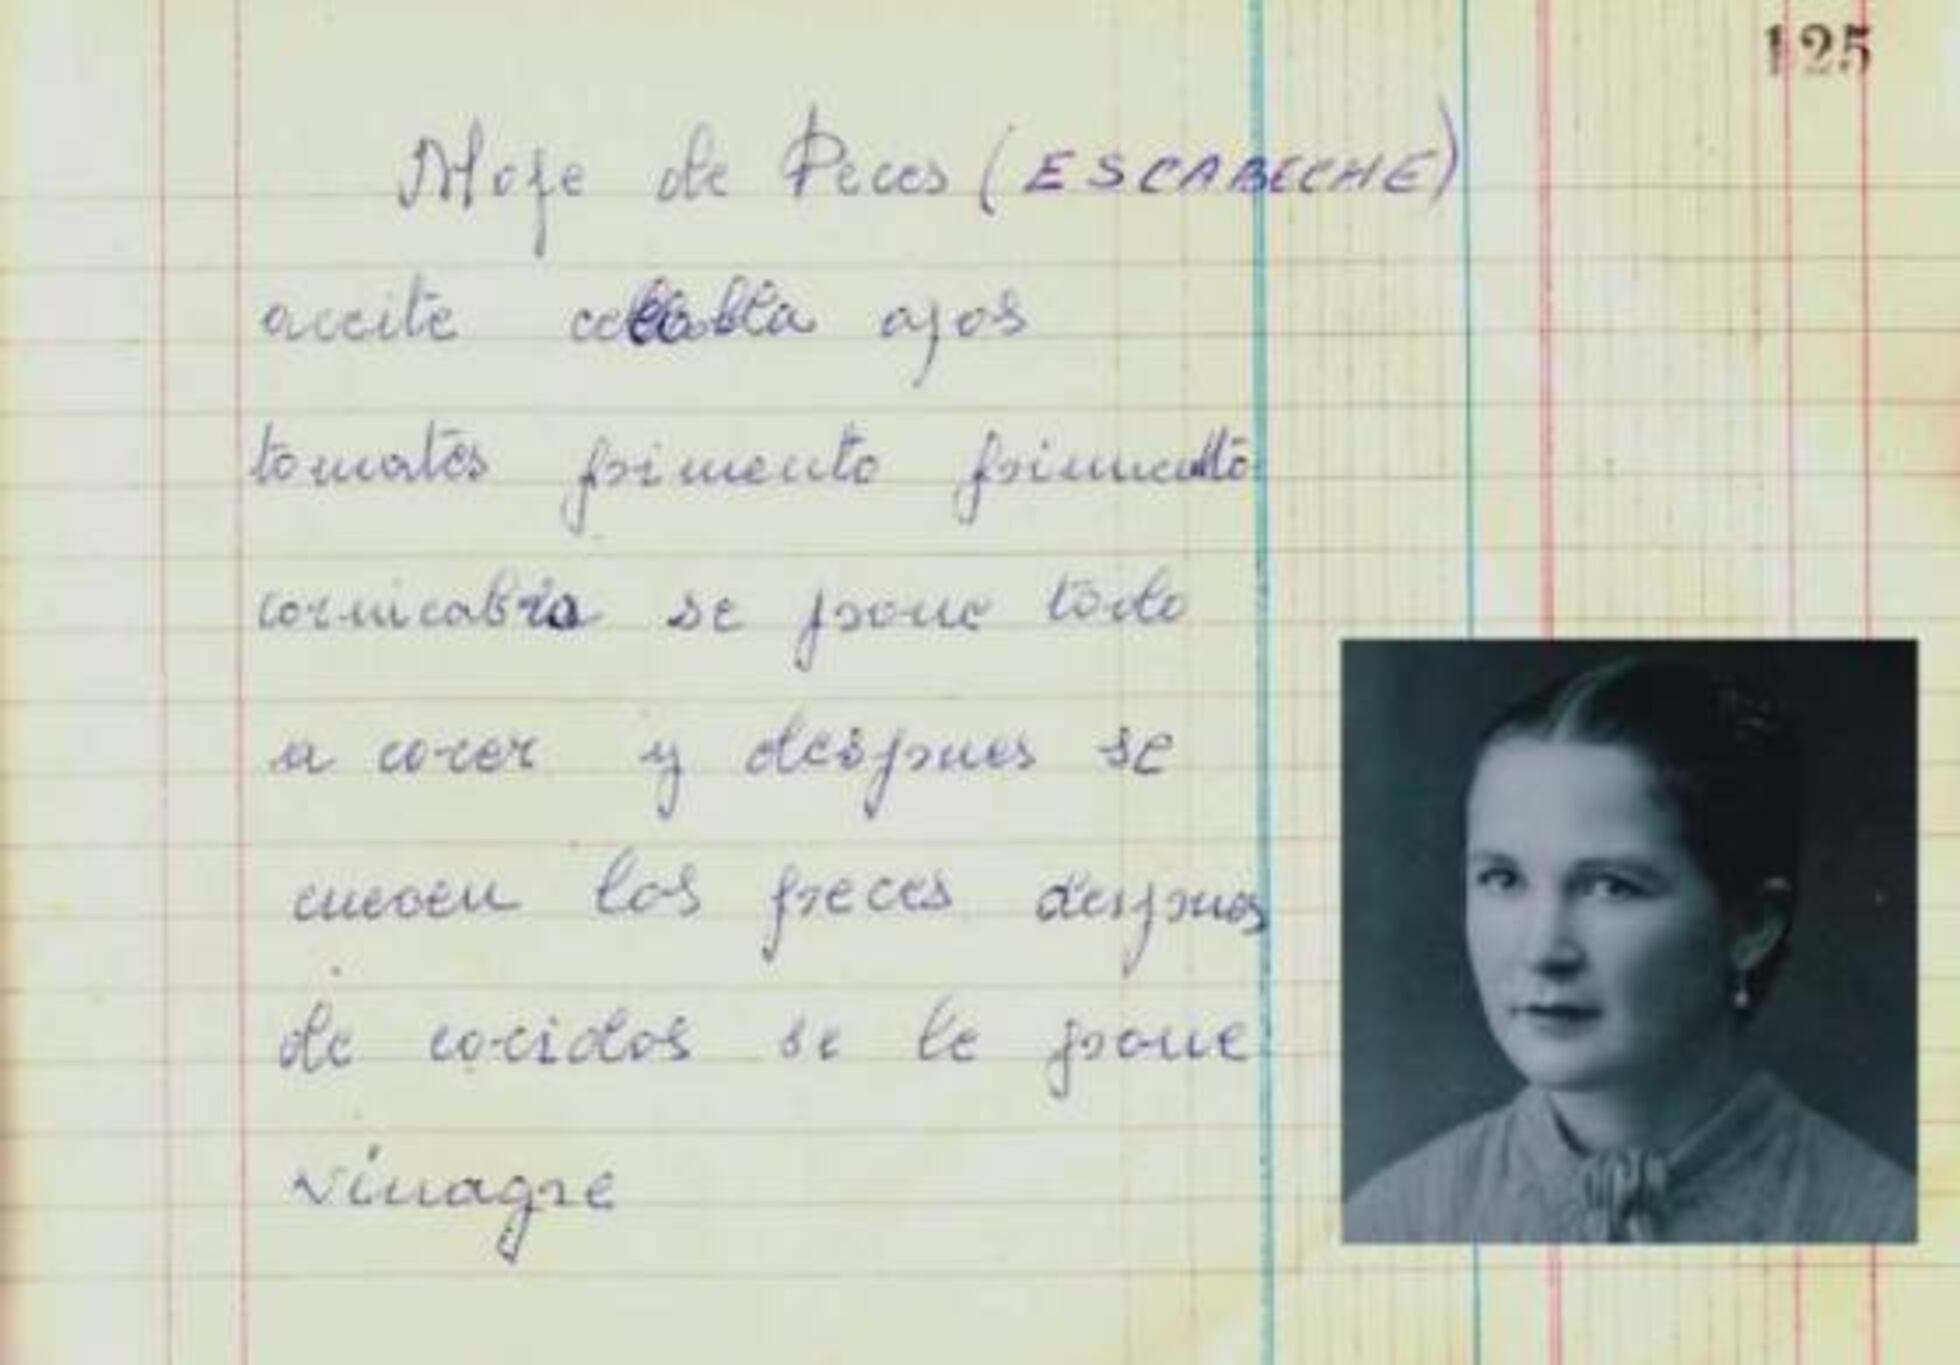 125
Moje de Peces (ESCABECHE)
aceite ajos
tomates pimento pimento
cornicabra se pone todo
a cocer y despues se
cuecen los peces despues
de cocidos se le pone
vinagre